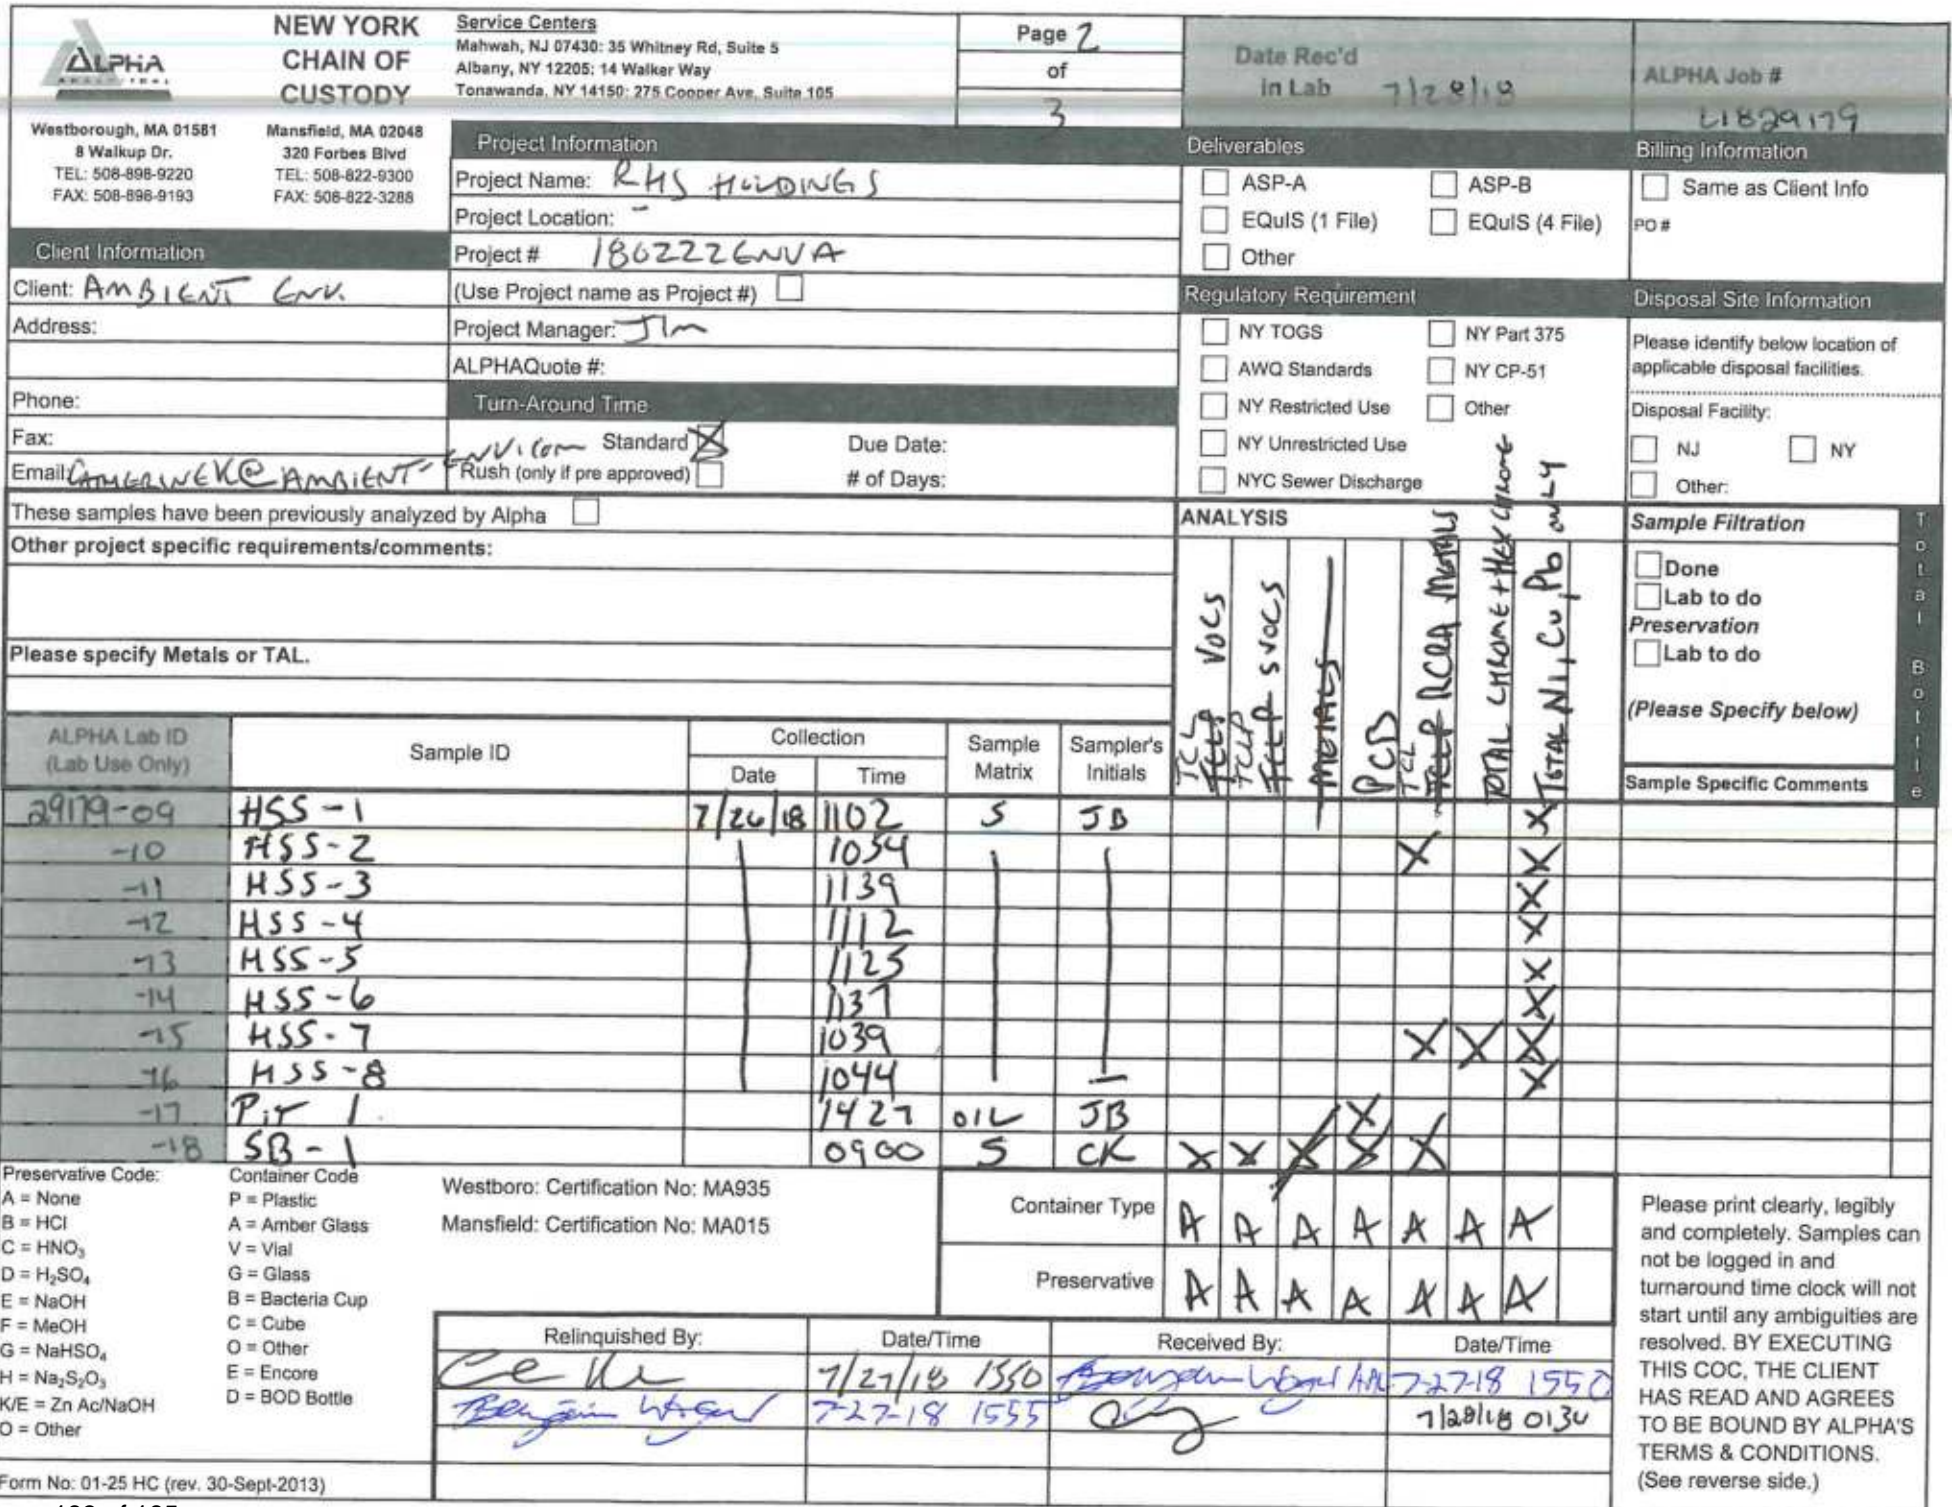 ALPHA
ANALYTICAL
NEW YORK
CHAIN OF
CUSTODY
Westborough, MA 01581
8 Walkup Dr.
TEL: 508-898-9220
FAX: 508-898-9193
Mansfield, MA 02048
320 Forbes Blvd
TEL: 508-822-9300
FAX: 508-822-3288
Service Centers
Mahwah, NJ 07430: 35 Whitney Rd, Suite 5
Albany, NY 12205: 14 Walker Way
Tonawanda, NY 14150: 275 Cooper Ave, Suite 105
Page 2
of
3
Date Rec'd
in Lab 7/28/18
ALPHA Job #
L1829179
Client Information
Client: AMBIENT ENV.
Address:
Phone:
Fax:
Email: CATHERINEK@AMBIENT-ENV.COM
Project Information
Project Name: RHS HOLDINGS
Project Location: -
Project # 180222ENVA
(Use Project name as Project #)
Project Manager: JIM
ALPHAQuote #:
Turn-Around Time
Standard X
Due Date:
Rush (only if pre approved)
# of Days:
Deliverables
ASP-A ASP-B
EQuIS (1 File) EQuIS (4 File)
Other
Regulatory Requirement
NY TOGS NY Part 375
AWQ Standards NY CP-51
NY Restricted Use Other
NY Unrestricted Use
NYC Sewer Discharge
Billing Information
Same as Client Info
PO #
Disposal Site Information
Please identify below location of
applicable disposal facilities.
Disposal Facility:
NJ NY
Other:
These samples have been previously analyzed by Alpha
Other project specific requirements/comments:
Please specify Metals or TAL.
ANALYSIS
TCL TCLP VOCS
TCLP TCLP SVOCS
METALS
PCB
TCL TCLP RCRA METALS
TOTAL CHROME + HEX CHROME
TOTAL Ni, Cu, Pb ONLY
Sample Filtration
Done
Lab to do
Preservation
Lab to do
(Please Specify below)
Total Bottle
ALPHA Lab ID
(Lab Use Only)
Sample ID
Collection
Date Time
Sample
Matrix
Sampler's
Initials
Sample Specific Comments
29179-09 HSS-1 7/26/18 1102 S JB X
-10 HSS-2 1054 X X
-11 HSS-3 1139 X
-12 HSS-4 1112 X
-13 HSS-5 1125 X
-14 HSS-6 1137 X
-15 HSS-7 1039 X X X
-16 HSS-8 1044 X
-17 Pit 1 1427 OIL JB X
-18 SB-1 0900 S CK X X X X X
Preservative Code:
A = None
B = HCl
C = HNO3
D = H2SO4
E = NaOH
F = MeOH
G = NaHSO4
H = Na2S2O3
K/E = Zn Ac/NaOH
O = Other
Container Code
P = Plastic
A = Amber Glass
V = Vial
G = Glass
B = Bacteria Cup
C = Cube
O = Other
E = Encore
D = BOD Bottle
Westboro: Certification No: MA935
Mansfield: Certification No: MA015
Container Type A A A A A A A
Preservative A A A A A A A
Relinquished By: Date/Time Received By: Date/Time
7/27/18 1550 7-27-18 1550
7-27-18 1555 7/28/18 0130
Please print clearly, legibly
and completely. Samples can
not be logged in and
turnaround time clock will not
start until any ambiguities are
resolved. BY EXECUTING
THIS COC, THE CLIENT
HAS READ AND AGREES
TO BE BOUND BY ALPHA'S
TERMS & CONDITIONS.
(See reverse side.)
Form No: 01-25 HC (rev. 30-Sept-2013)